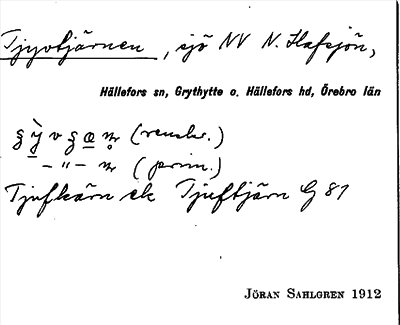 Tjyvtjärnen, sjö NV N. Hafsjön,
Hällefors sn, Grythytte o. Hällefors hd, Örebro län
(venskr.)
– " – (prim.)
Tjufkärn ek Tjuftjärn G 81
JÖRAN SAHLGREN 1912